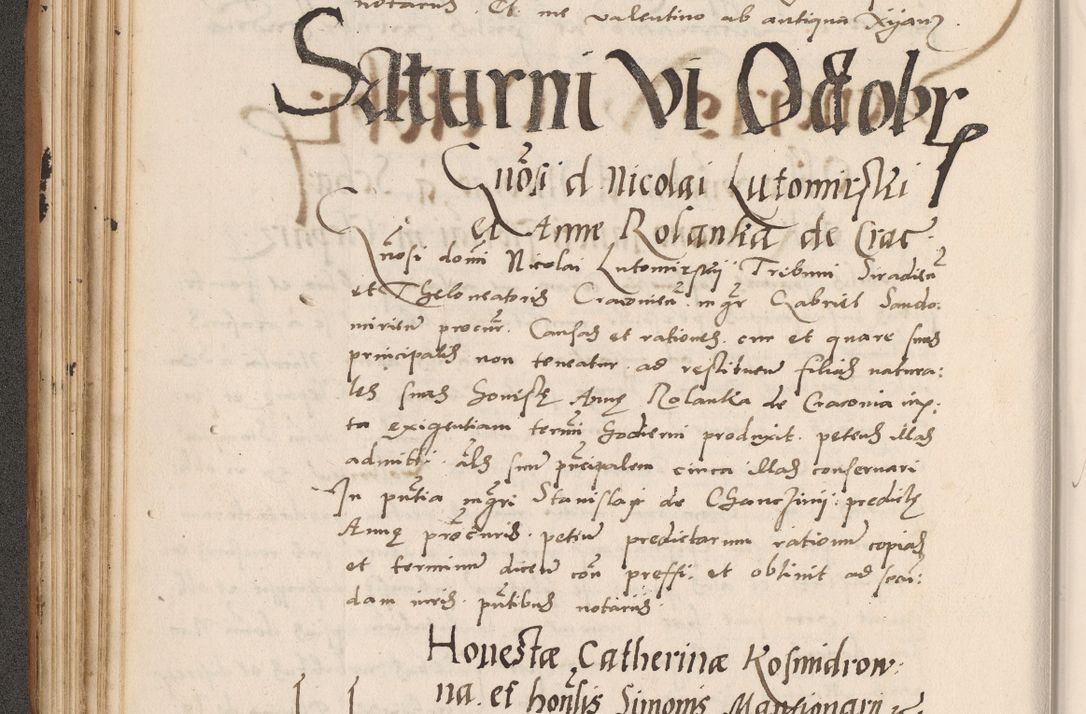 notarius. Et me valentino ab antiqua
Saturni vi Octobr
Gnosi d Nicolai Lutomirski
et Anne Rolantka de Crac.
Gnosi domi Nicolai Lutomirskij Tribuni Siradien
et Theloneatoris Cracovien. mgr Gabriel Sando:
mirien procur. Causas et rationes. cur et quare suus
principalis non teneatur. ad restituen filias natura:
les suas honestę Annę Rolantka de Cracovia iux:
ta exigentiam termi hodierni produxit. petens illas
admitti. als suum principalem circa illas conservari
In pntia mgri Stanislaj de Chanczinij: predictę
Annę procuris. petiit predictarum rationum copias
et terminum dicen con preffi: et obtinit ad secu:
dam iuris. pntibus notariis
Honestæ Catherinæ Kosmidrow.
na. et honlis Simonis Mantionarii